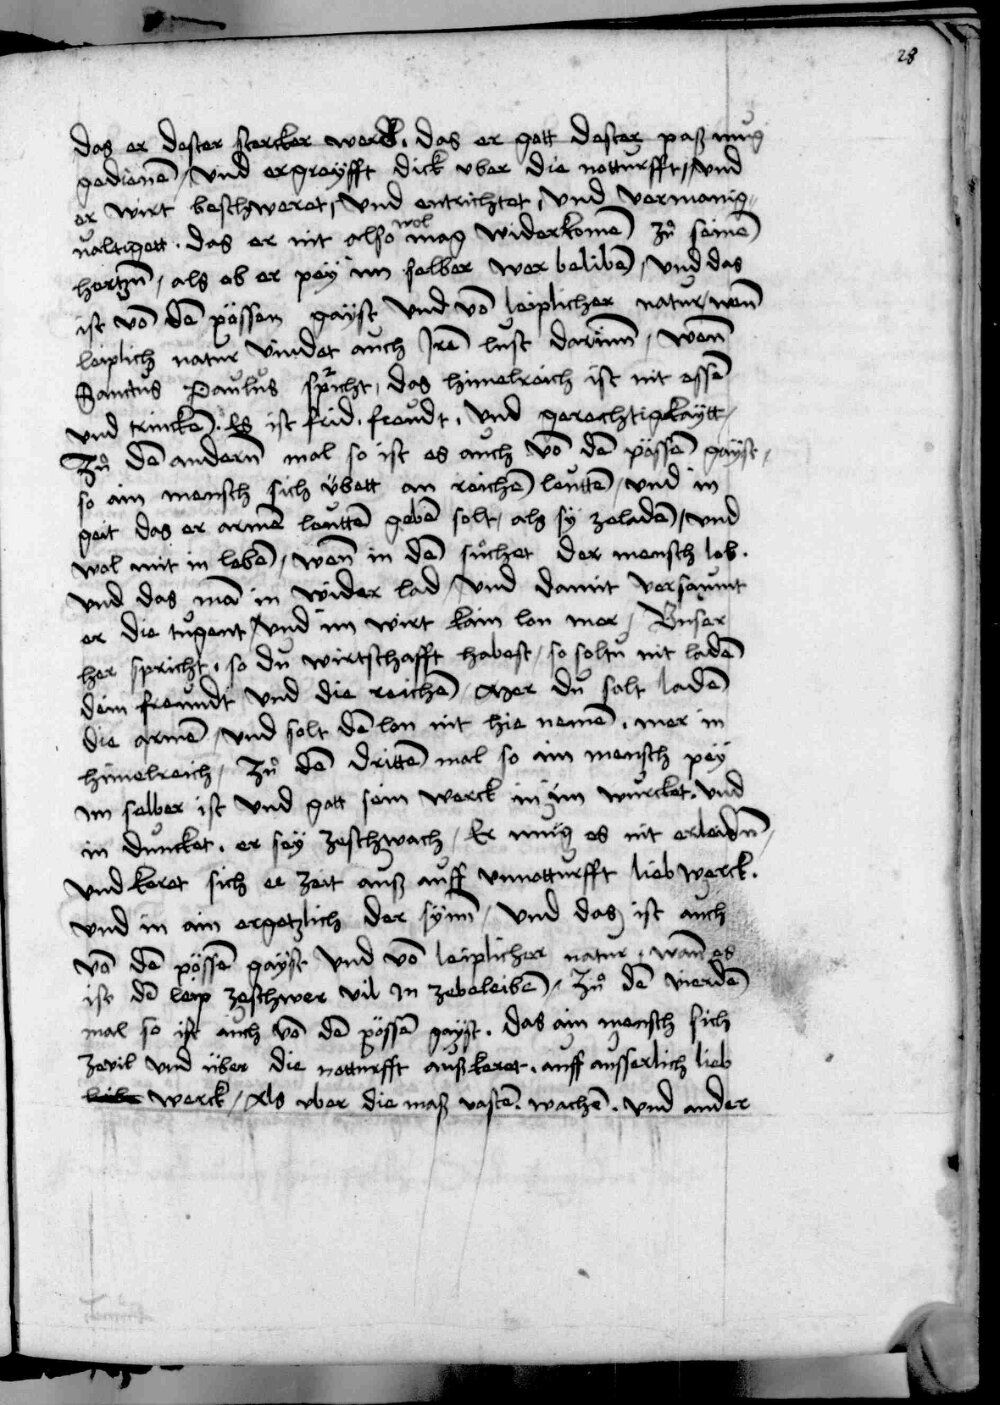 28
das er dester stercker werd. das er gott dester paß mug
gedienē / vnd ergreyfft dick vber die notturfft / vnd
er wirt beschweret / vnd entrichtet / vnd vermanig-
ualtigett . das er nit also wol mag widerkomē zů seinē
hertzn̄ / als ob er pey im selber wer belibē / vnd das
ist vō dē pössen gayst vnd vō leiplicher natur / wen̄
leiplich natur vindet auch Irē lust darinn̄ / wen̄
Sanctus Paulus spricht / das himelreich ist nit essē
vnd trinckē . Es ist frid . freudt . vnd gerechtigkaytt /
Zů dē andern̄ mal so ist es auch vō dē pössē gayst /
so ain mensch sich übett an reichē leuttē / vnd in
geit das er armē leuttē gebē solt / als sy zeladē / vnd
wol mit in lebē / wen̄ in dē sůchet der mensch lob .
vnd das mā in wider lad / vnd damit versaumt
er die tugent / vnd im wirt kain lon mer / Vnser
her spricht . so du wirtschafft habest / so soltu nit ladē
dein freundt vnd die reichē / Mer du solt ladē
die armē / vnd solt dē lon nit hie nemē . mer in
himelreich / Zů dē drittē mal so ain mensch pey
im selber ist vnd gott sein werck in im würcket . vnd
in duncket . er sey zeschwach / Er mug es nit erleidn̄ /
vnd keret sich ee zeit auß auff vnnotturfft lieb werck .
vnd in ain ergetzlich der synn̄ / vnd das ist auch
vō dē pössē gayst vnd vō leiplicher natur . wan̄ es
ist dē leip zeschwer vil In zebeleibē / Zů dē vierdē
mal so ist auch vō dē pössē gayst . das ain mensch sich
zevil vnd über die notturfft außkeret . auff ausserlich lieb
werck / Als vber die maß vastē . wachē . vnd ander